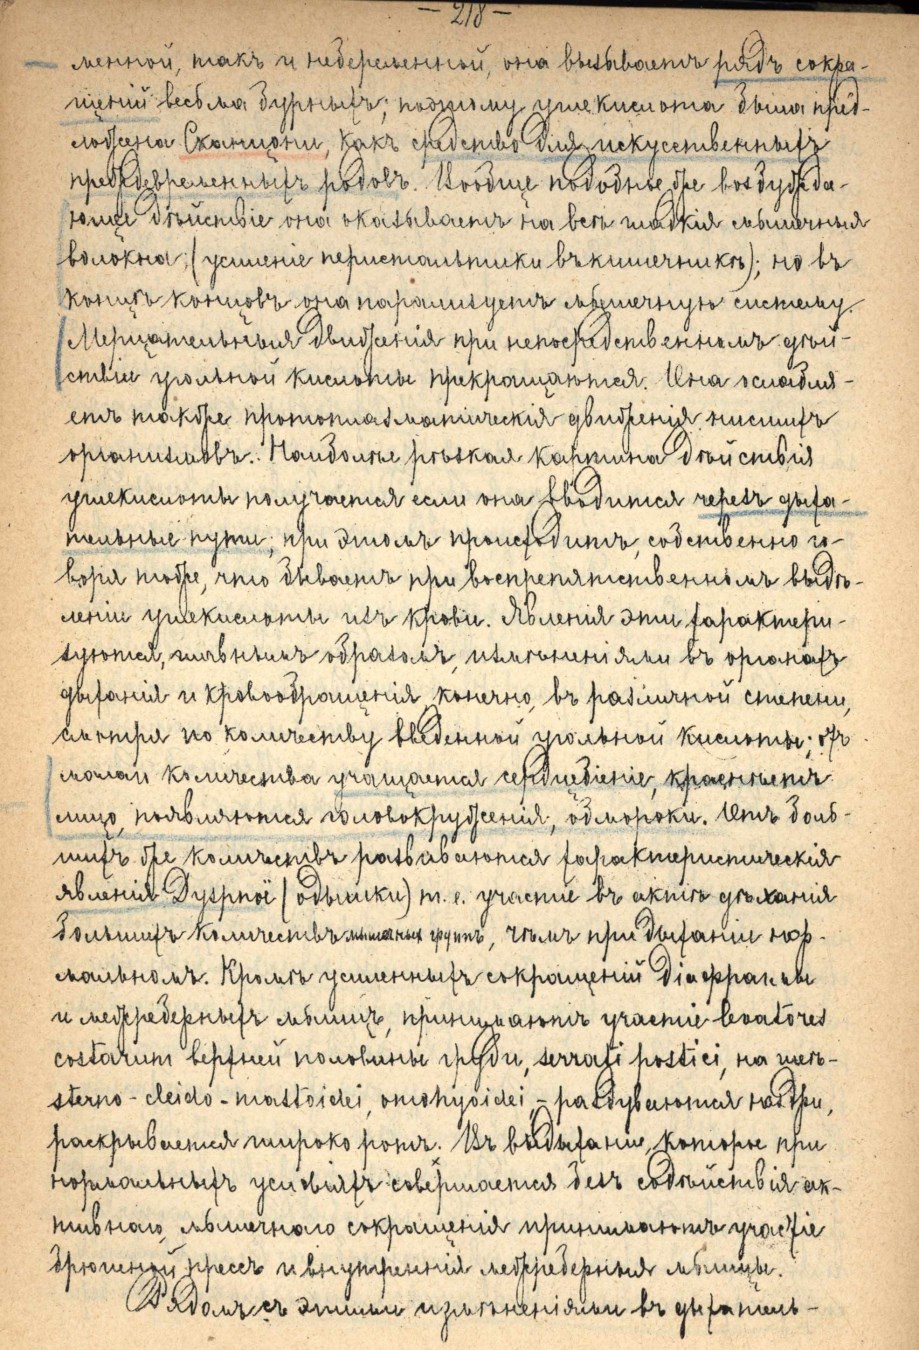 — 218 —
менной, такъ и небеременной, она вызываетъ рядъ сокра-
щеній весьма бурныхъ; поэтому углекислота была пред-
ложена Сканцони, какъ средство для искусственныхъ
преждевременныхъ родовъ. Вообще подобное же возбужда-
ющее дѣйствіе она оказываетъ на всѣ гладкія мышечныя
волокна (усиленіе перистальтики въ кишечникѣ); но въ
концѣ концовъ она парализуетъ мышечную систему.
Мерцательныя движенія при непосредственномъ дѣй-
ствіи угольной кислоты прекращаются. Она ослабля-
етъ также протоплазматическія движенія низшихъ
организмовъ. Наиболѣе рѣзкая картина дѣйствія
углекислоты получается если она вводится черезъ дыха-
тельные пути; при этомъ происходитъ, собственно го-
воря тоже, что бываетъ при воспрепятственномъ выдѣ-
леніи углекислоты изъ крови. Явленія эти характери-
зуются, главнымъ образомъ, измѣненіями въ органахъ
дыханія и кровообращенія, конечно, въ различной степени,
смотря по количеству введенной угольной кислоты; отъ
малаи количества учащается сердцебіеніе, краснѣетъ
лицо, появляются головокруженія, обмороки. Отъ боль-
шихъ же количествъ развиваются характеристическія
явленія Dyspnoї (одышки) т. е. участіе въ актѣ дѣханія
большихъ количествъ мышечныхъ группъ, чѣмъ при дыханіи нор-
мальномъ. Кромѣ усиленныхъ сокращеній діафрагмы
и межреберныхъ мышцъ, принимаютъ участіе levatores
costarum верхней половины груди, serrati postici, на шеѣ-
sterno-cleido-mastoidei, omohyoidei, – раздуваются ноздри,
раскрывается широко ротъ. Въ выдыханіи, которое при
нормальныхъ условіяхъ совершается безъ содѣйствія ак-
тивнаго мышечнаго сокращенія принимаютъ участіе
брюшной прессъ и внутреннія межреберныя мышцы.
Рядомъ съ этими измѣненіями въ дыхатель-